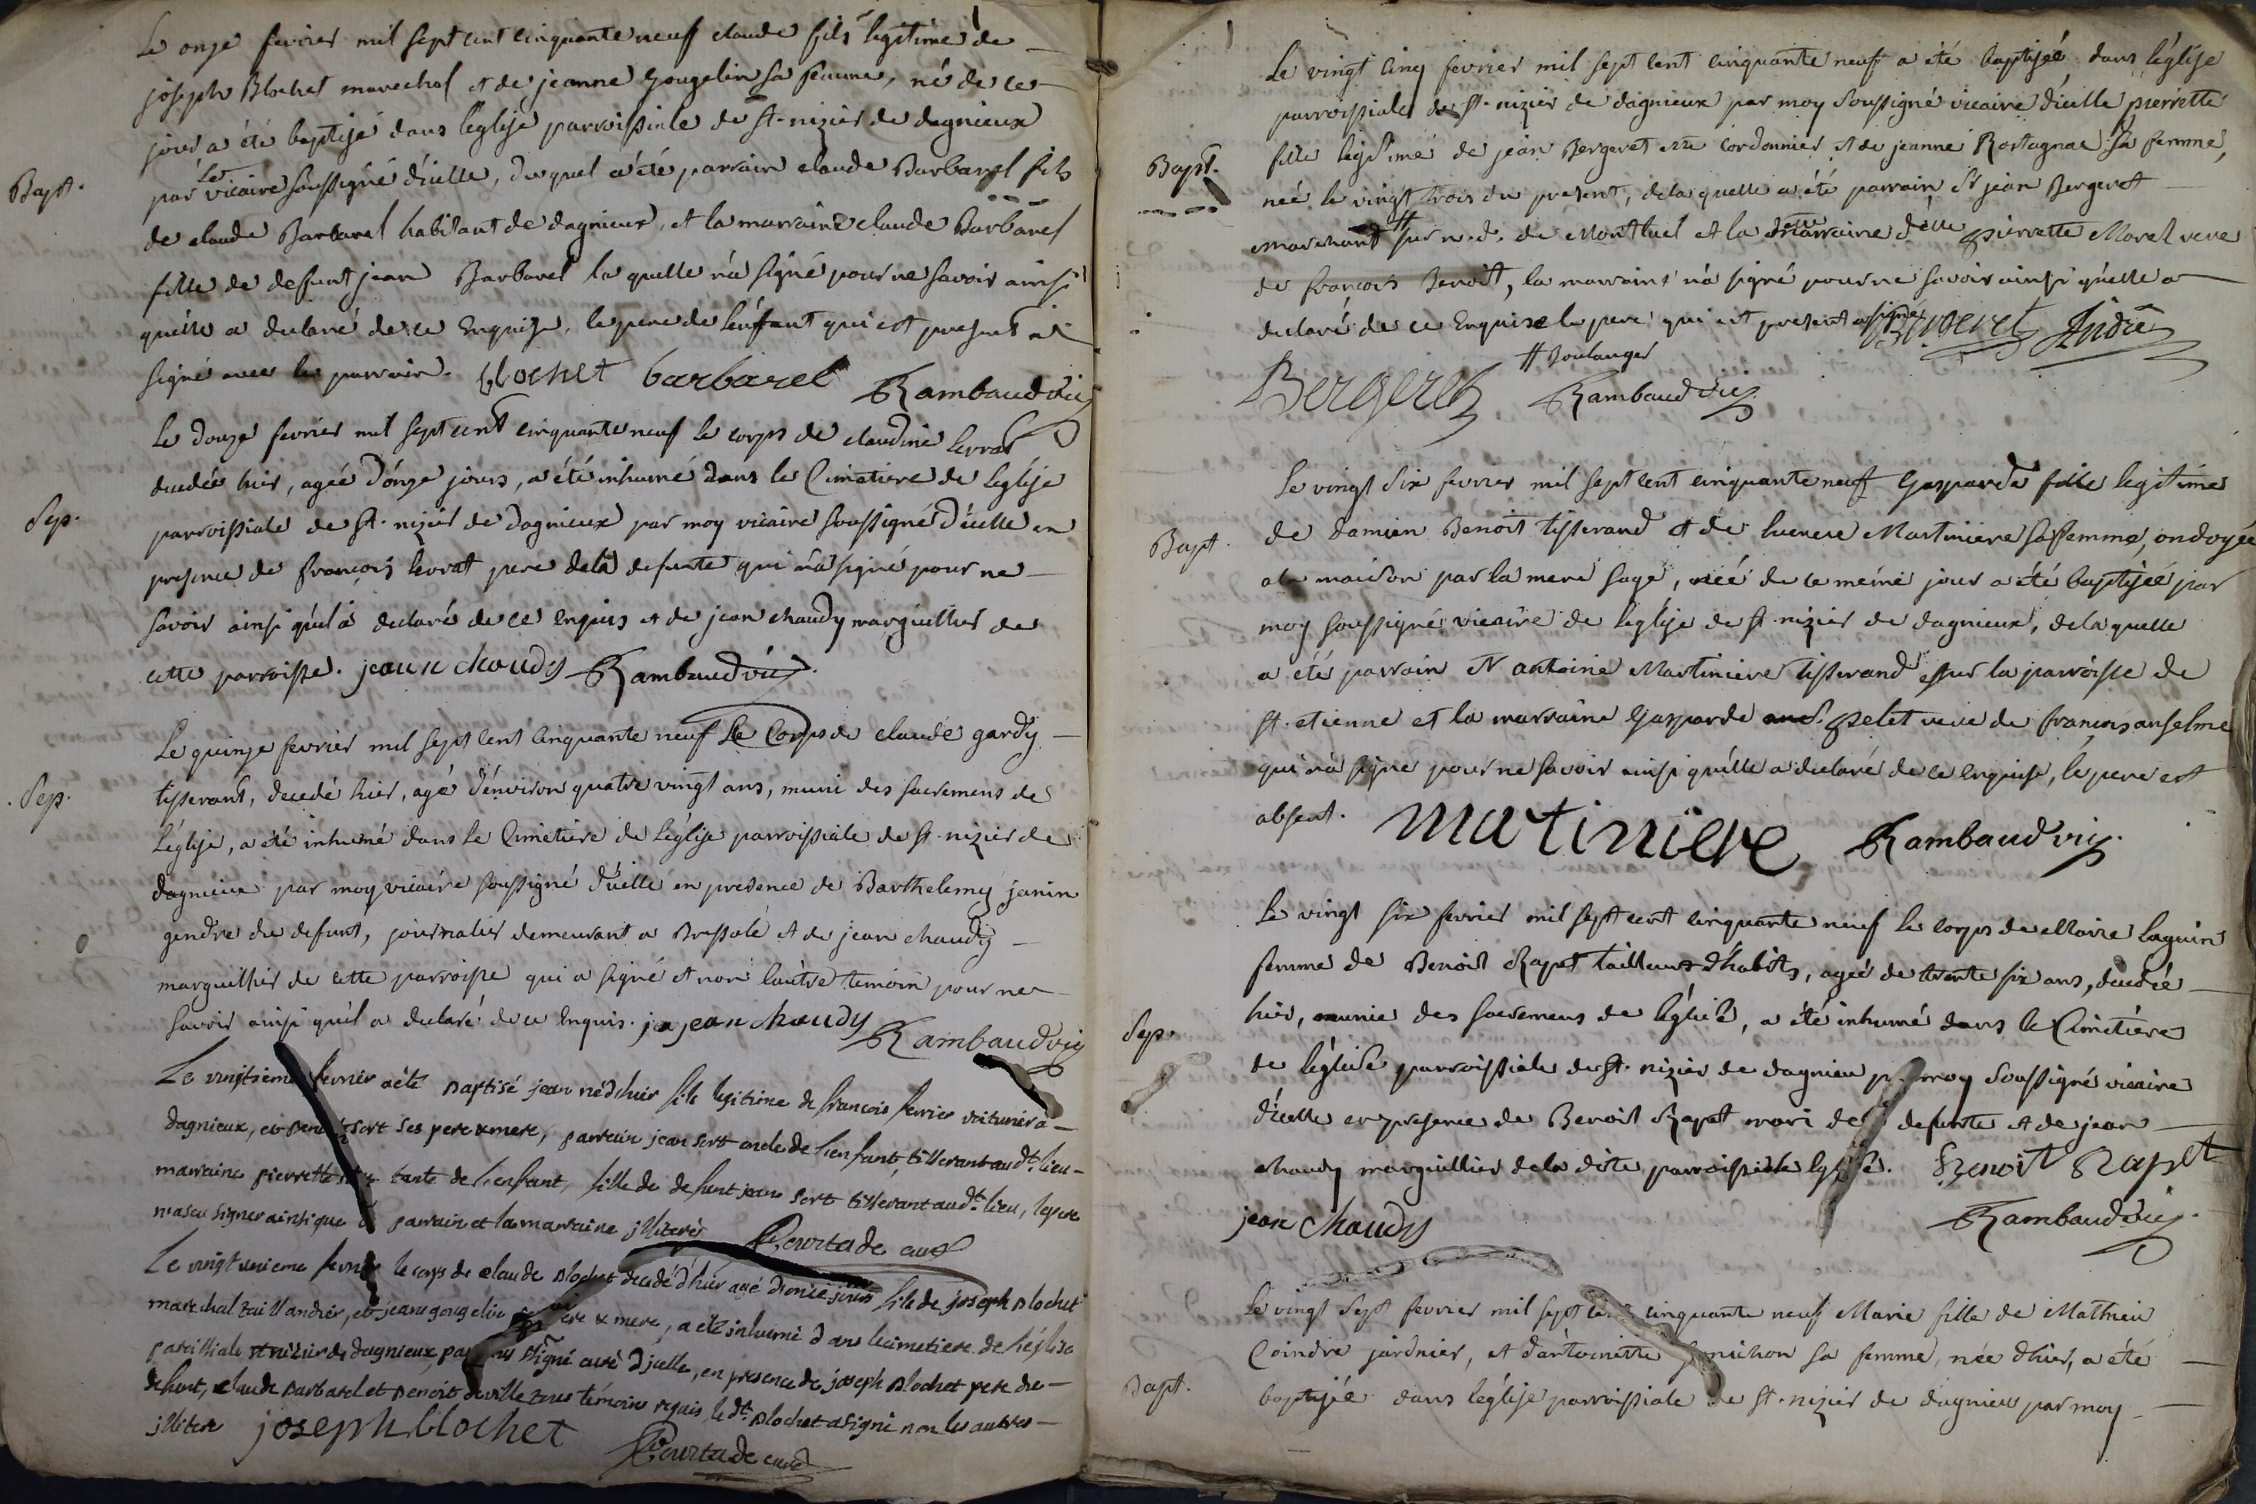 Le onze fevrier mil sept cent cinquante neuf claude fils legitime de
joseph Blochet marechal et de jeanne gougelin sa femme, né de ce
jour a été baptisé dans l'eglise parroissiale de st. nizier de dagnieux
Bapt.
par le vicaire soussigné d'icelle, duquel a été parrain claude Barbarel fils
de claude Barbarel habitant de dagnieux, et la marraine claude Barbarel
fille de defunt jean Barbarel la quelle n'a signé pour ne savoir ainsi
qu'elle a declaré de ce enquise, le pere de l'enfant qui est present a
signé avec le parrain. blochet barbarel Rambaud vic
Le douze fevrier mil sept cent cinquante neuf le corps de claudine levrat
decedée hier, agée d'onze jours, a été inhumé dans le Cimetiere de l'eglise
Sep.
parroissiale de st. nizier de dagnieux par moy vicaire soussigné d'icelle en
presence de françois levrat pere de la defunte qui n'a signé pour ne
savoir ainsi qu'il a declaré de ce enquis et de jean chaudy marguillier de
cette parroisse. jean chaudy Rambaud vic.
Le quinze fevrier mil sept cent cinquante neuf Le Corps de claude gardy
Sep.
tisserant, decedé hier, agé d'environ quatre vingt ans, muni des sacremens de
l'église, a été inhumé dans le Cimetiere de l'église parroissiale de st. nizier de
dagnieux par moy vicaire soussigné d'icelle en presence de Barthelemy janin
gendre du defunt, journalier demeurant a Bressole et de jean chaudy
marguillier de cette parroisse qui a signé et non l'autre temoin pour ne
savoir ainsi qu'il a declaré de ce enquis. jean chaudy
Rambaud vic
Le vingtieme fevrier a été baptisé jean né d'hier fils legitime de françois fevrier voiturier a
dagnieux, et sort ses pere & mere, parrain jean sort oncle de l'enfant tisserant aud.t lieu
marraine pierrette tante de l'enfant, fille de defunt jean sort tisserant aud.t lieu, le pere
n'a sçu signer ainsi que parrain et la marraine illiterés Courtade curé
Le vingt unieme fevrier le corps de claude blochet decedé d'hier agé d'onze jours fils de joseph blochet
marechal taillandier, et jeane gougelin pere & mere, a été inhumé dans le cimetiere de l'église
paroissiale st nizier de dagnieux, par signé curé d'icelle, en presence de joseph blochet pere du
defunt, claude barbarel et benoit deville temoins requis le d.t blochet a signé non les autres
illitere joseph blochet
Courtade curé
Le vingt cinq fevrier mil sept cent cinquante neuf a été baptisée dans l'église
parroissiale de st. nizier de dagnieux par moy soussigné vicaire d'icelle pierrette
Bapt.
fille legitime de jean Bergeret cordonnier et de jeanne Rostagnac sa femme,
née le vingt trois du present, de la quelle a été parrain Sr jean Bergeret
marchand # sur n. d. de Montluel et la marraine pierrette Morel veve
de françois Benoit, la marraine n'a signé pour ne savoir ainsi qu'elle a
declaré de ce enquise le pere qui est present a signé Bergeret André
# Boulanger
Bergeret Rambaud vic.
Le vingt six fevrier mil sept cent cinquante neuf Gasparde fille legitime
Bapt.
de damien Benoit tisserand et de lucrece Martiniere sa femme, ondoyée
a la maison par la mere sage, née de ce même jour a été baptisée par
moy soussigné vicaire de l'eglise de st. nizier de dagnieux, de la quelle
a été parrain Sr antoine Martiniere tisserand sur la parroisse de
st. etienne et la marraine Gasparde pelet veve de françois anselme
qui n'a signé pour ne savoir ainsi qu'elle a declaré de ce enquise, le pere est
absent. Matiniere Rambaud vic.
Le vingt six fevrier mil sept cent cinquante neuf le corps de Marie laguin
femme de Benoit Rapet tailleur d'habits, agée de trente six ans, decedée
Sep.
hier, munie des sacremens de l'église, a été inhumé dans le Cimetiére
de l'église parroissiale de st. nizier de dagnieu par moy soussigné vicaire
d'icelle en presence de Benoit Rapet mari de defunte et de jean
chaudy marguillier de la dite parroissiale eglise. Benoit Rapet
jean chaudy Rambaud vic.
Le vingt sept fevrier mil sept cent cinquante neuf Marie fille de Mathieu
Coindre jardinier, et d'antoinette sa femme, née d'hier, a été
Bapt.
baptisée dans l'église parroissiale de st. nizier de dagnieu par moy